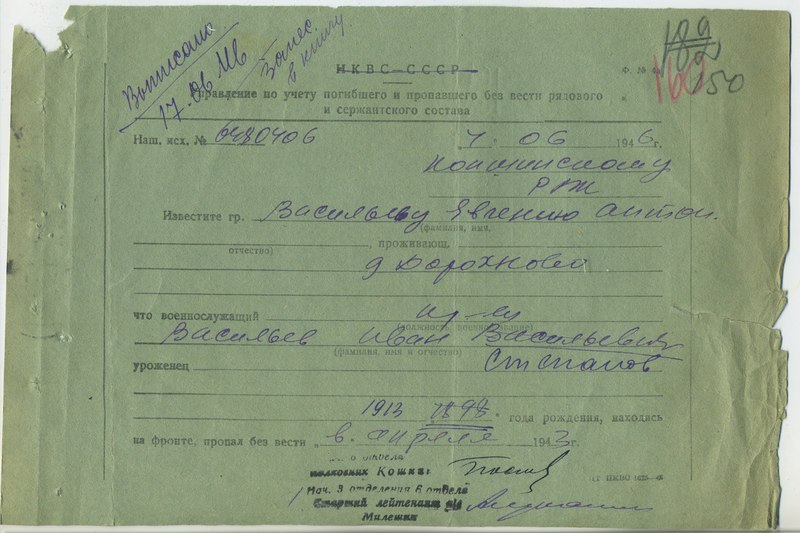 Выписана
17.06.46
Занес
в книгу
182
150
НКВС–СССР
Ф. №
Управление по учету погибшего и пропавшего без вести рядового
и сержантского состава
Наш. исх. № 6480406 „4" 06 1946г.
РВК
Известите гр. Васильеву Евгению Антон.
(фамилия, имя,
отчество) , проживающ.
д Дорохново
что военнослужащий кр-ец
(должность, военное звание)
Васильев Иван Васильевич
(фамилия, имя и отчество)
уроженец
1913 года рождения, находясь
на фронте, пропал без вести „в апреле 1943г.
отдела
полковник Кошки
Нач. 3 отделения 6 отдела
Старший лейтенант
Милешин